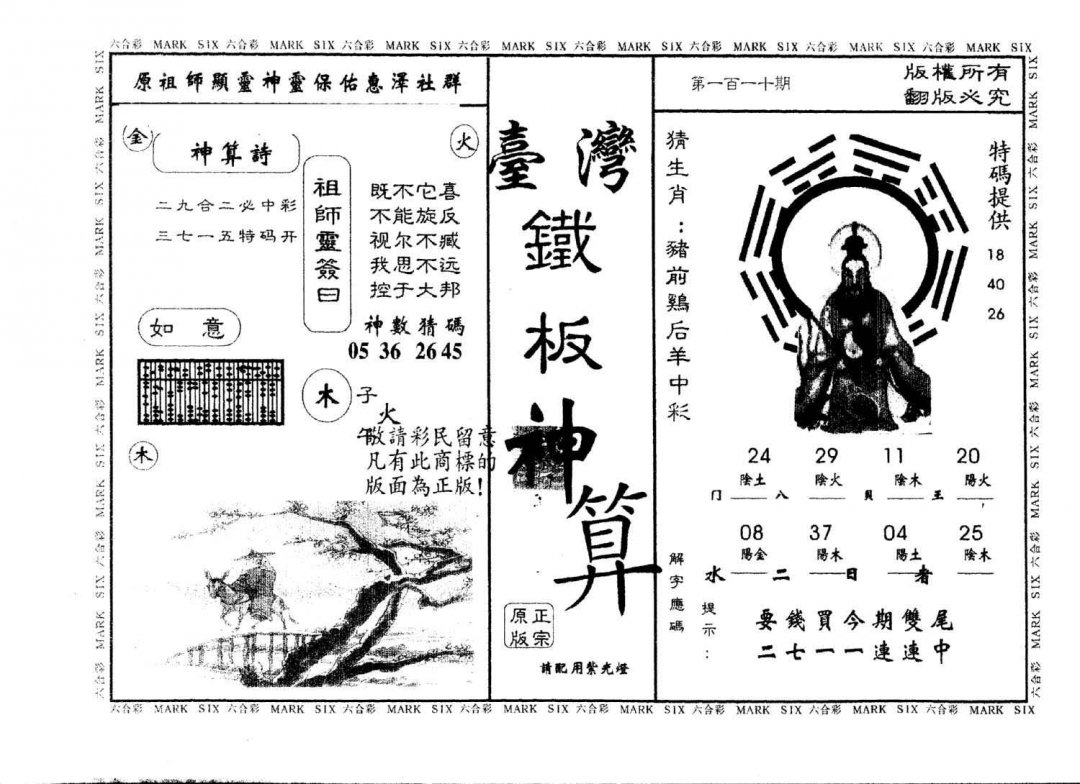 六合彩 MARK SIX 六合彩 MARK SIX 六合彩 MARK SIX 六合彩 MARK SIX 六合彩 MARK SIX 六合彩 MARK SIX 六合彩 MARK SIX 六合彩 MARK SIX
原祖師顯靈神靈保佑惠澤社群
金
火
神算詩
二九合二必中彩
三七一五特码开
祖師靈簽曰
既不它喜
不能旋反
视尔不臧
我思不远
控于大邦
神數猜碼
05 36 26 45
如意
木
木
子
火
午
敬請彩民留意
凡有此商標的
版面為正版!
臺灣
鐵
板
神
算
原正
版宗
請配用紫光燈
第一百一十期
版權所有
翻版必究
猜生肖:豬前鷄后羊中彩
特碼提供
18
40
26
24 29 11 20
陰土 陰火 陰木 陽火
门 八 貝 王
08 37 04 25
陽金 陽木 陽土 陰木
水 二 日 者
解字應碼
提示:
要錢買今期雙尾
二七一一連連中
六合彩 MARK SIX 六合彩 MARK SIX 六合彩 MARK SIX 六合彩 MARK SIX 六合彩 MARK SIX 六合彩 MARK SIX 六合彩 MARK SIX 六合彩 MARK SIX